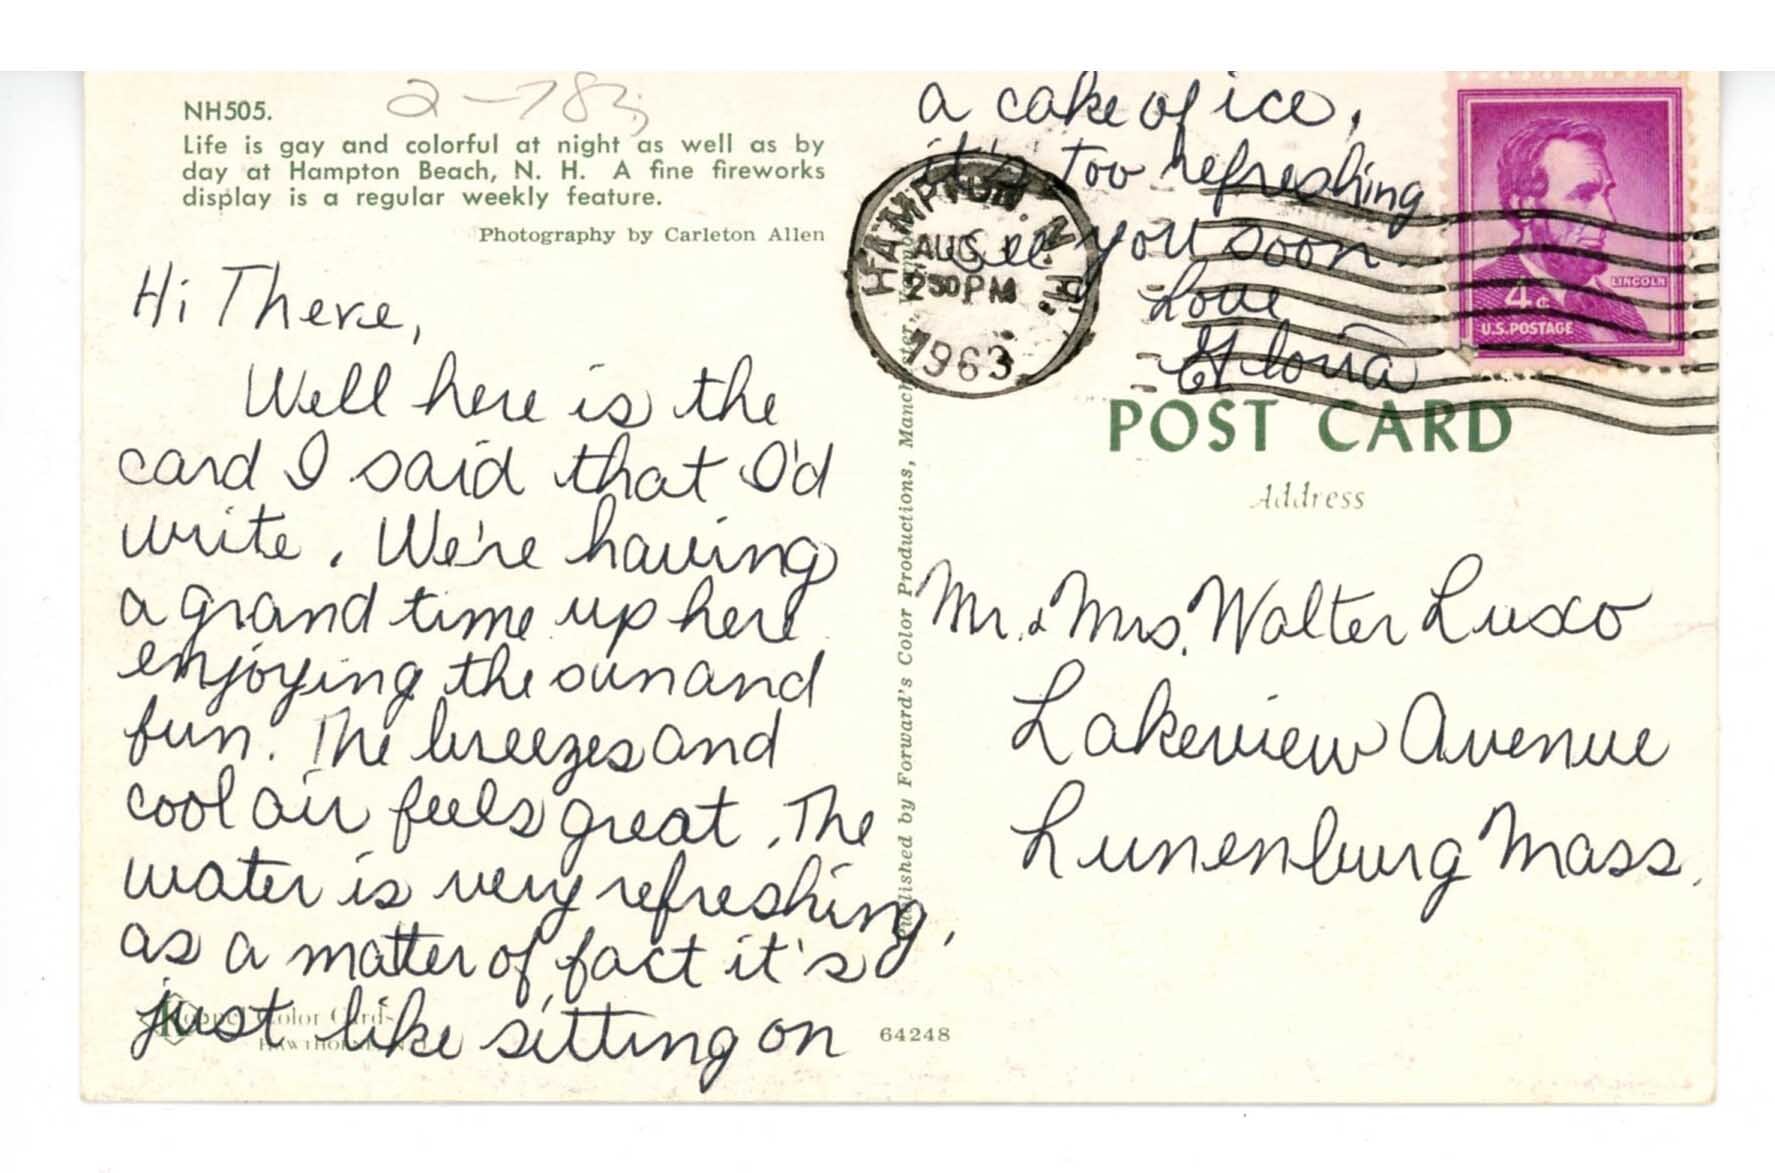 NH505.
2-783
Life is gay and colorful at night as well as by
day at Hampton Beach, N. H. A fine fireworks
display is a regular weekly feature.
Photography by Carleton Allen
Hi There,
Well here is the
card I said that I'd
write. We're having
a grand time up here
enjoying the sun and
fun. The breezes and
cool air feels great. The
water is very refreshing,
as a matter of fact it's
just like sitting on
a cake of ice,
it's too refreshing
See you soon.
Love
Gloria
HAMPTON, N. H.
AUG
230PM
1963
LINCOLN
4¢
U.S. POSTAGE
POST CARD
Address
Mr. & Mrs. Walter Luxo
Lakeview Avenue
Lunenburg Mass.
Published by Forward's Color Productions, Manchester, Vermont
Koppel Color Cards
HAWTHORNE, N.J.
64248